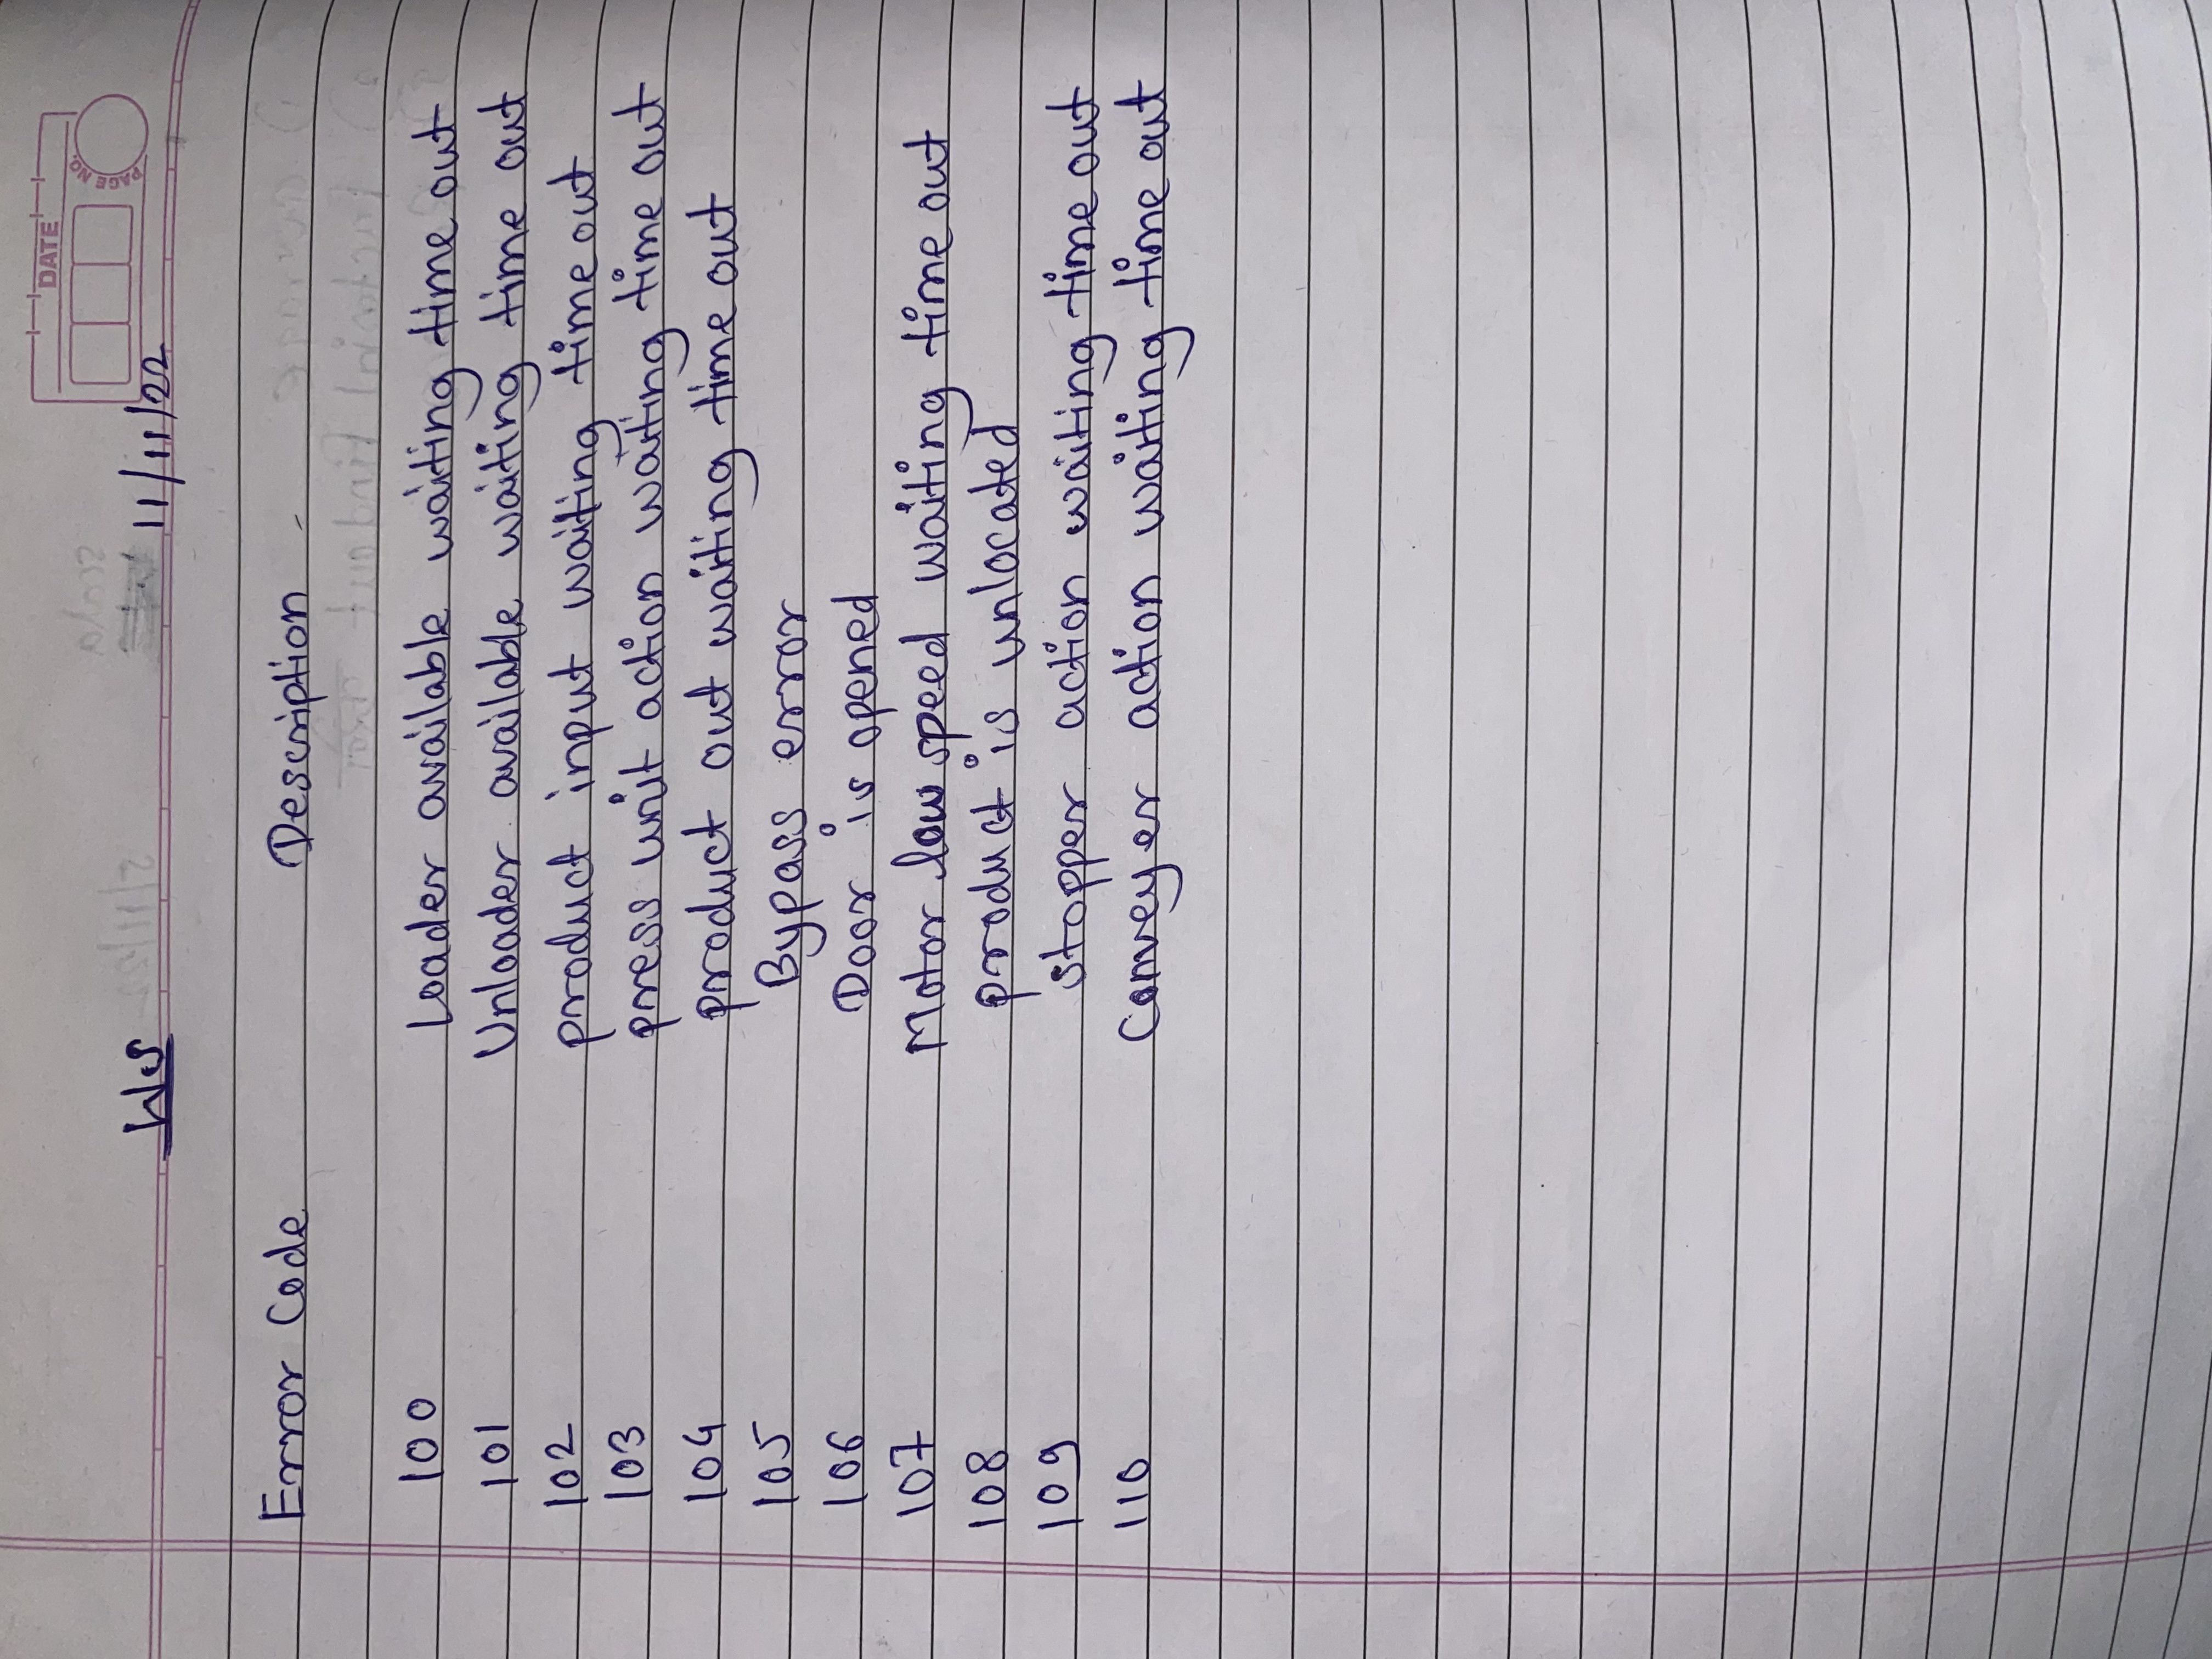 DATE
PAGE NO.
WS 11/11/22
Error Code Description -
100 Loader available waiting time out
101 Unloader available waiting time out
102 product input waiting time out
103 press unit action waiting time out
104 product out waiting time out
105 Bypass error
106 Door is opened
107 Motor low speed waiting time out
108 product is unlocated
109 stopper action waiting time out
110 Conveyer action waiting time out